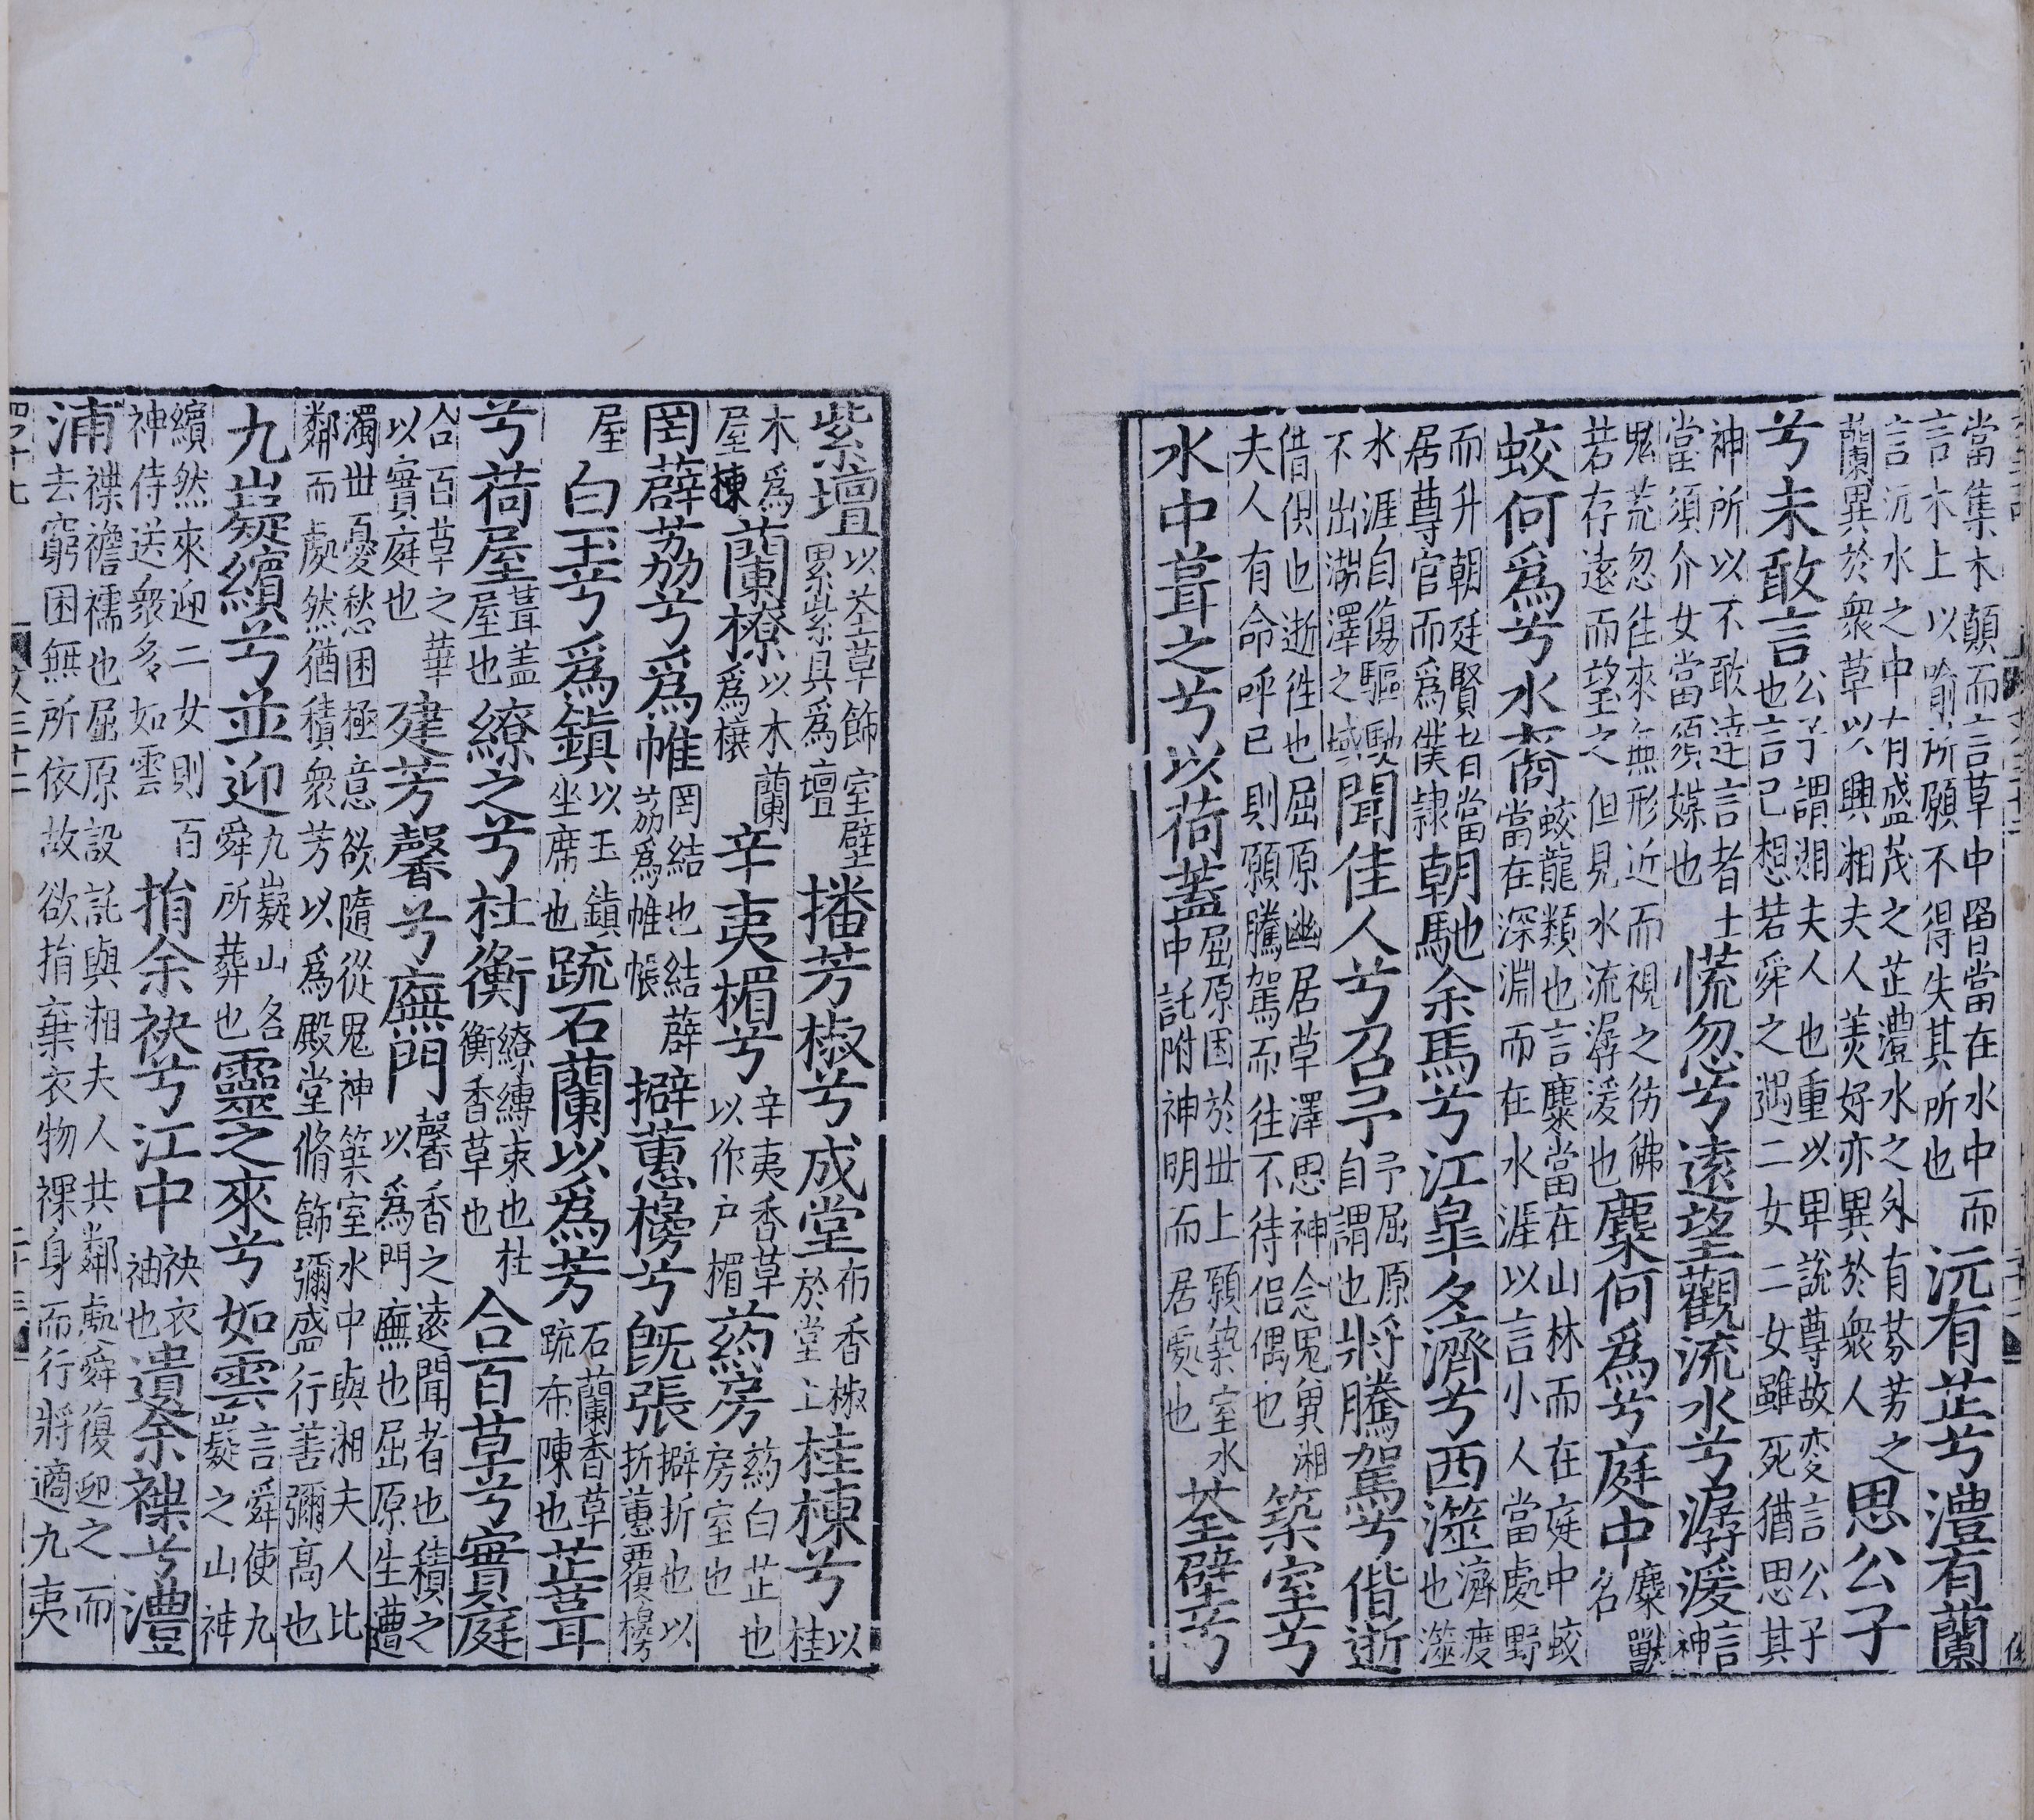 當集木顛而言草中罾當在水中而言木上以喻所願不得失其所也沅有芷兮澧有蘭
言沅水之中有盛茂之芷澧水之外有芬芳之蘭異於衆草以興湘夫人美好亦異於衆人思公子
兮未敢言公子謂湘夫人也重以卑說尊故変言公子也言己想若舜之遇二女二女雖死猶思其
神所以不敢逹言者士當須介女當須媒也慌忽兮遠望觀流水兮潺湲言神
鬼荒忽往來無形近而視之彷彿若存遠而望之但見水流潺湲也麋何爲兮庭中麋獸名
蛟何爲兮水裔蛟龍類也言麋當在山林而在庭中蛟當在深淵而在水涯以言小人當處野
而升朝廷賢者當居尊官而爲僕隷朝馳余馬兮江臯夕濟兮西澨濟度也澨
水涯自傷驅馳不出湖澤之域聞佳人兮召予予屈原自謂也將騰駕兮偕逝
偕俱也逝徃也屈原幽居草澤思神念鬼兾湘夫人有命呼已則願騰駕而往不待侣偶也築室兮
水中葺之兮以荷蓋屈原困於世上願築室水中託附神明而居處也荃壁兮
紫壇以荃草飾室壁累紫具爲壇播芳椒兮成堂布香椒於堂上桂棟兮以桂
木爲屋揀蘭橑以木蘭爲榱辛夷楣兮辛夷香草以作户楣葯房葯白芷也房室也
罔薜荔兮爲帷罔結也結薜荔爲帷帳擗蕙櫋兮旣張擗折也以折蕙覆櫋
屋白玉兮爲鎭以玉鎮坐席也疏石蘭以爲芳石蘭香草疏布陳也芷葺
兮荷屋葺盖屋也繚之兮杜衡繚縛束也杜衡香草也合百草兮實庭
合百草之華以實庭也建芳馨兮廡門馨香之遠聞者也積之以爲門廡也屈原生遭
濁世憂愁困極意欲隨從鬼神築室水中與湘夫人比鄰而處然猶積衆芳以爲殿堂脩飾彌盛行善彌高也
九嶷繽兮並迎九嶷山名舜所葬也靈之來兮如雲言舜使九嶷之山神
繽然來迎二女則百神侍送衆多如雲捐余袂兮江中袂衣袖也遺余褋兮澧
浦褋襜襦也屈原設託與湘夫人共鄰處舜復迎之而去窮困無所依故欲捐棄衣物裸身而行將適九夷